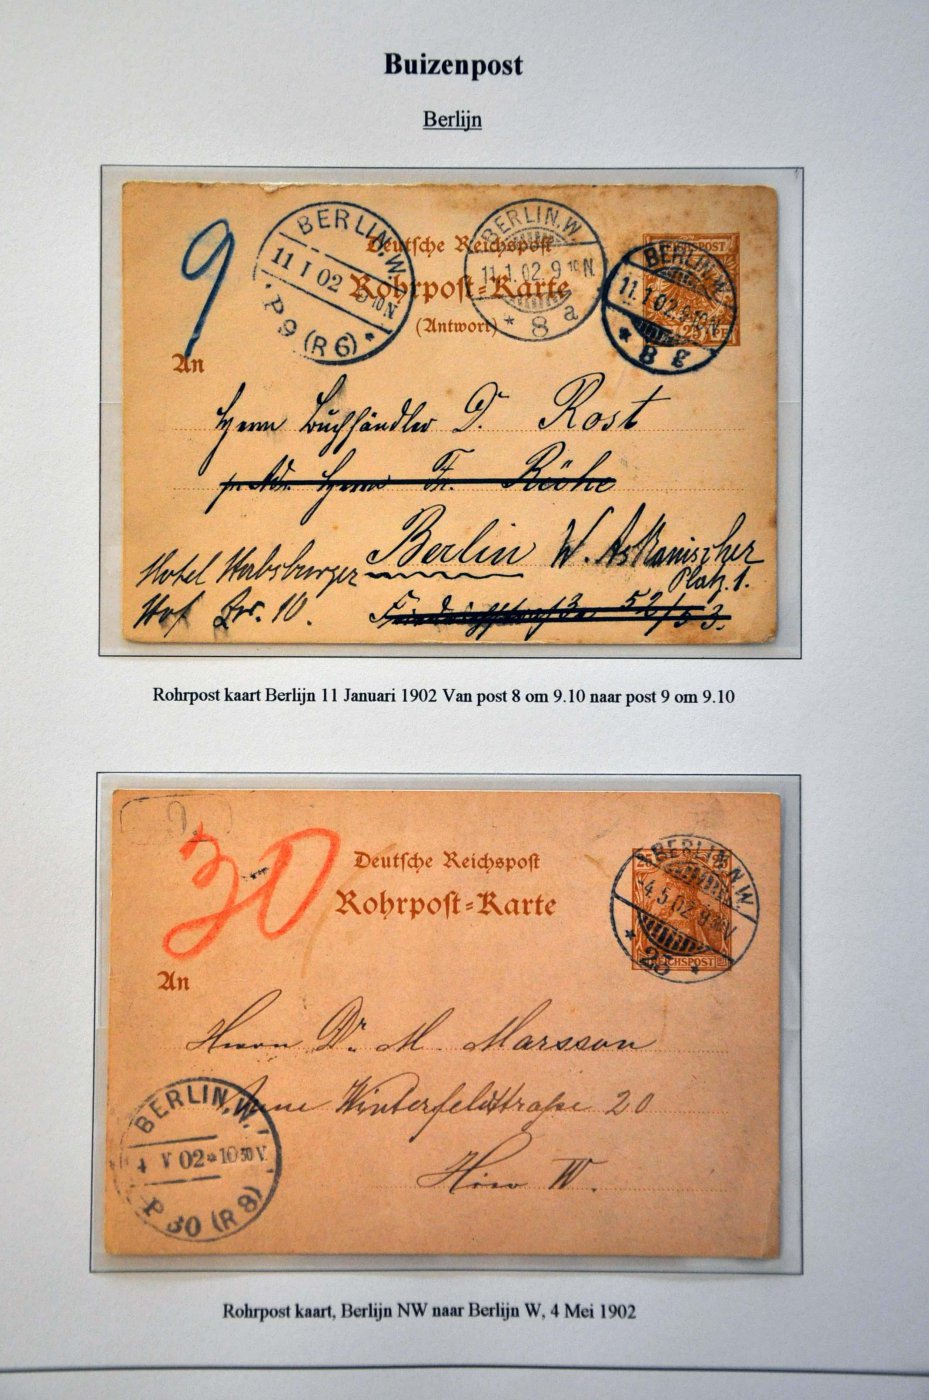 Buizenpost
Berlijn
Deutsche Reichspost
Rohrpost=Karte
(Antwort)
An
9
BERLIN.W.
11 I 02 9 10 N
P 9 (R 6) *
BERLIN.W.
11.1.02.9 10 N.
* 8 a
REICHSPOST
25 PF
BERLIN.W.
11.1.02.9 10 N.
* 8 g
Herrn Buchhändler Dr. Rost
Herrn Fr. Röhe
Berlin W. Askanischer
Platz 1.
Hotel Habsburger
Hof Zr. 10.
52/53.
Rohrpost kaart Berlijn 11 Januari 1902 Van post 8 om 9.10 naar post 9 om 9.10
30
Deutsche Reichspost
Rohrpost=Karte
An
25 25
REICHSPOST
BERLIN.N.W.
-4.5.02.9 V.
* 23 *
Herrn Dr. M. Marsson
Neue Winterfeldtstraße 20
Hier W.
BERLIN.W.
4 V 02 * 10 30 V.
P 30 (R 8)
Rohrpost kaart, Berlijn NW naar Berlijn W, 4 Mei 1902